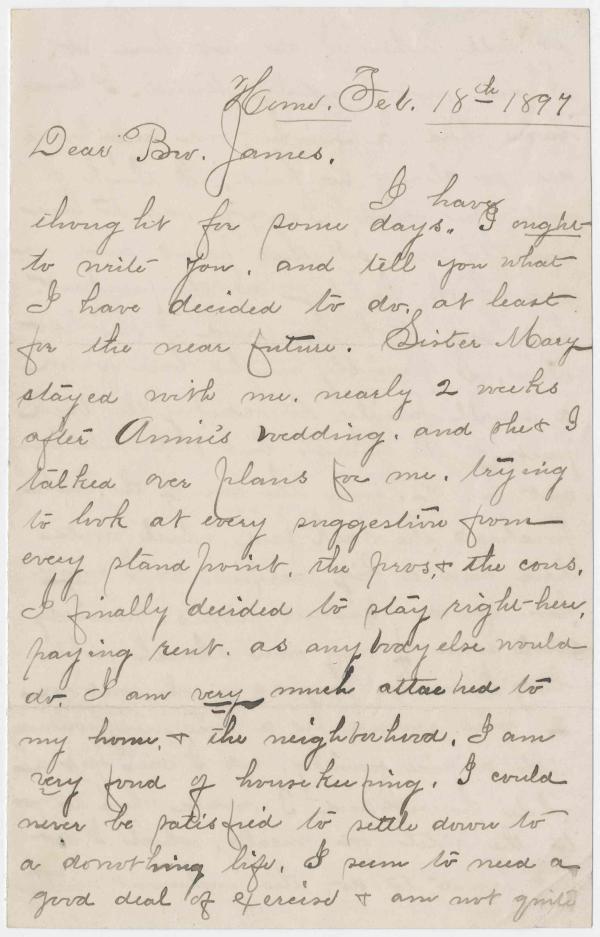 Home. Feb. 18th 1897
Dear Bro. James.
I have
thought for some days. I ought
to write you, and tell you what
I have decided to do, at least
for the near future. Sister Mary
stayed with me, nearly 2 weeks
after Annie's wedding, and she & I
talked over plans for me, trying
to look at every suggestion from
every stand point, the pros, & the cons.
I finally decided to stay right-here,
paying rent, as anybody else would
do. I am very much attached to
my home, & the neighborhood. I am
very fond of housekeeping. I could
never be satisfied to settle down to
a donothing life. I seem to need a
good deal of exercise & am not quite